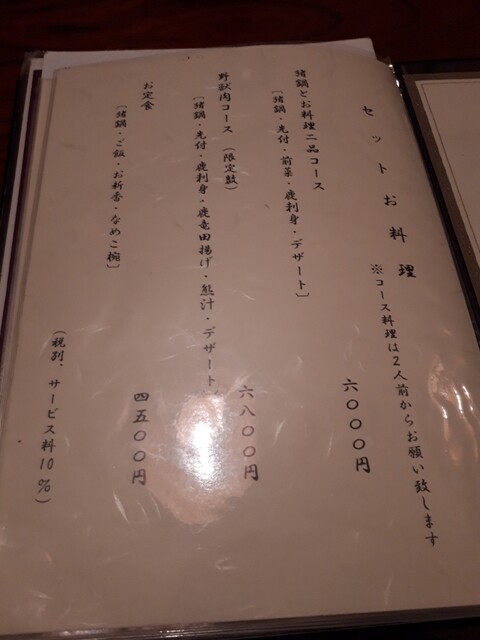 セットお料理
※コース料理は2人前からお願い致します
猪鍋とお料理二品コース
〔猪鍋・先付・前菜・鹿刺身・デザート〕
六〇〇〇円
野獣肉コース（限定数）
〔猪鍋・先付・鹿刺身・鹿竜田揚げ・熊汁・デザート〕
六八〇〇円
お定食
〔猪鍋・ご飯・お新香・なめこ椀〕
四五〇〇円
（税別、サービス料10％）